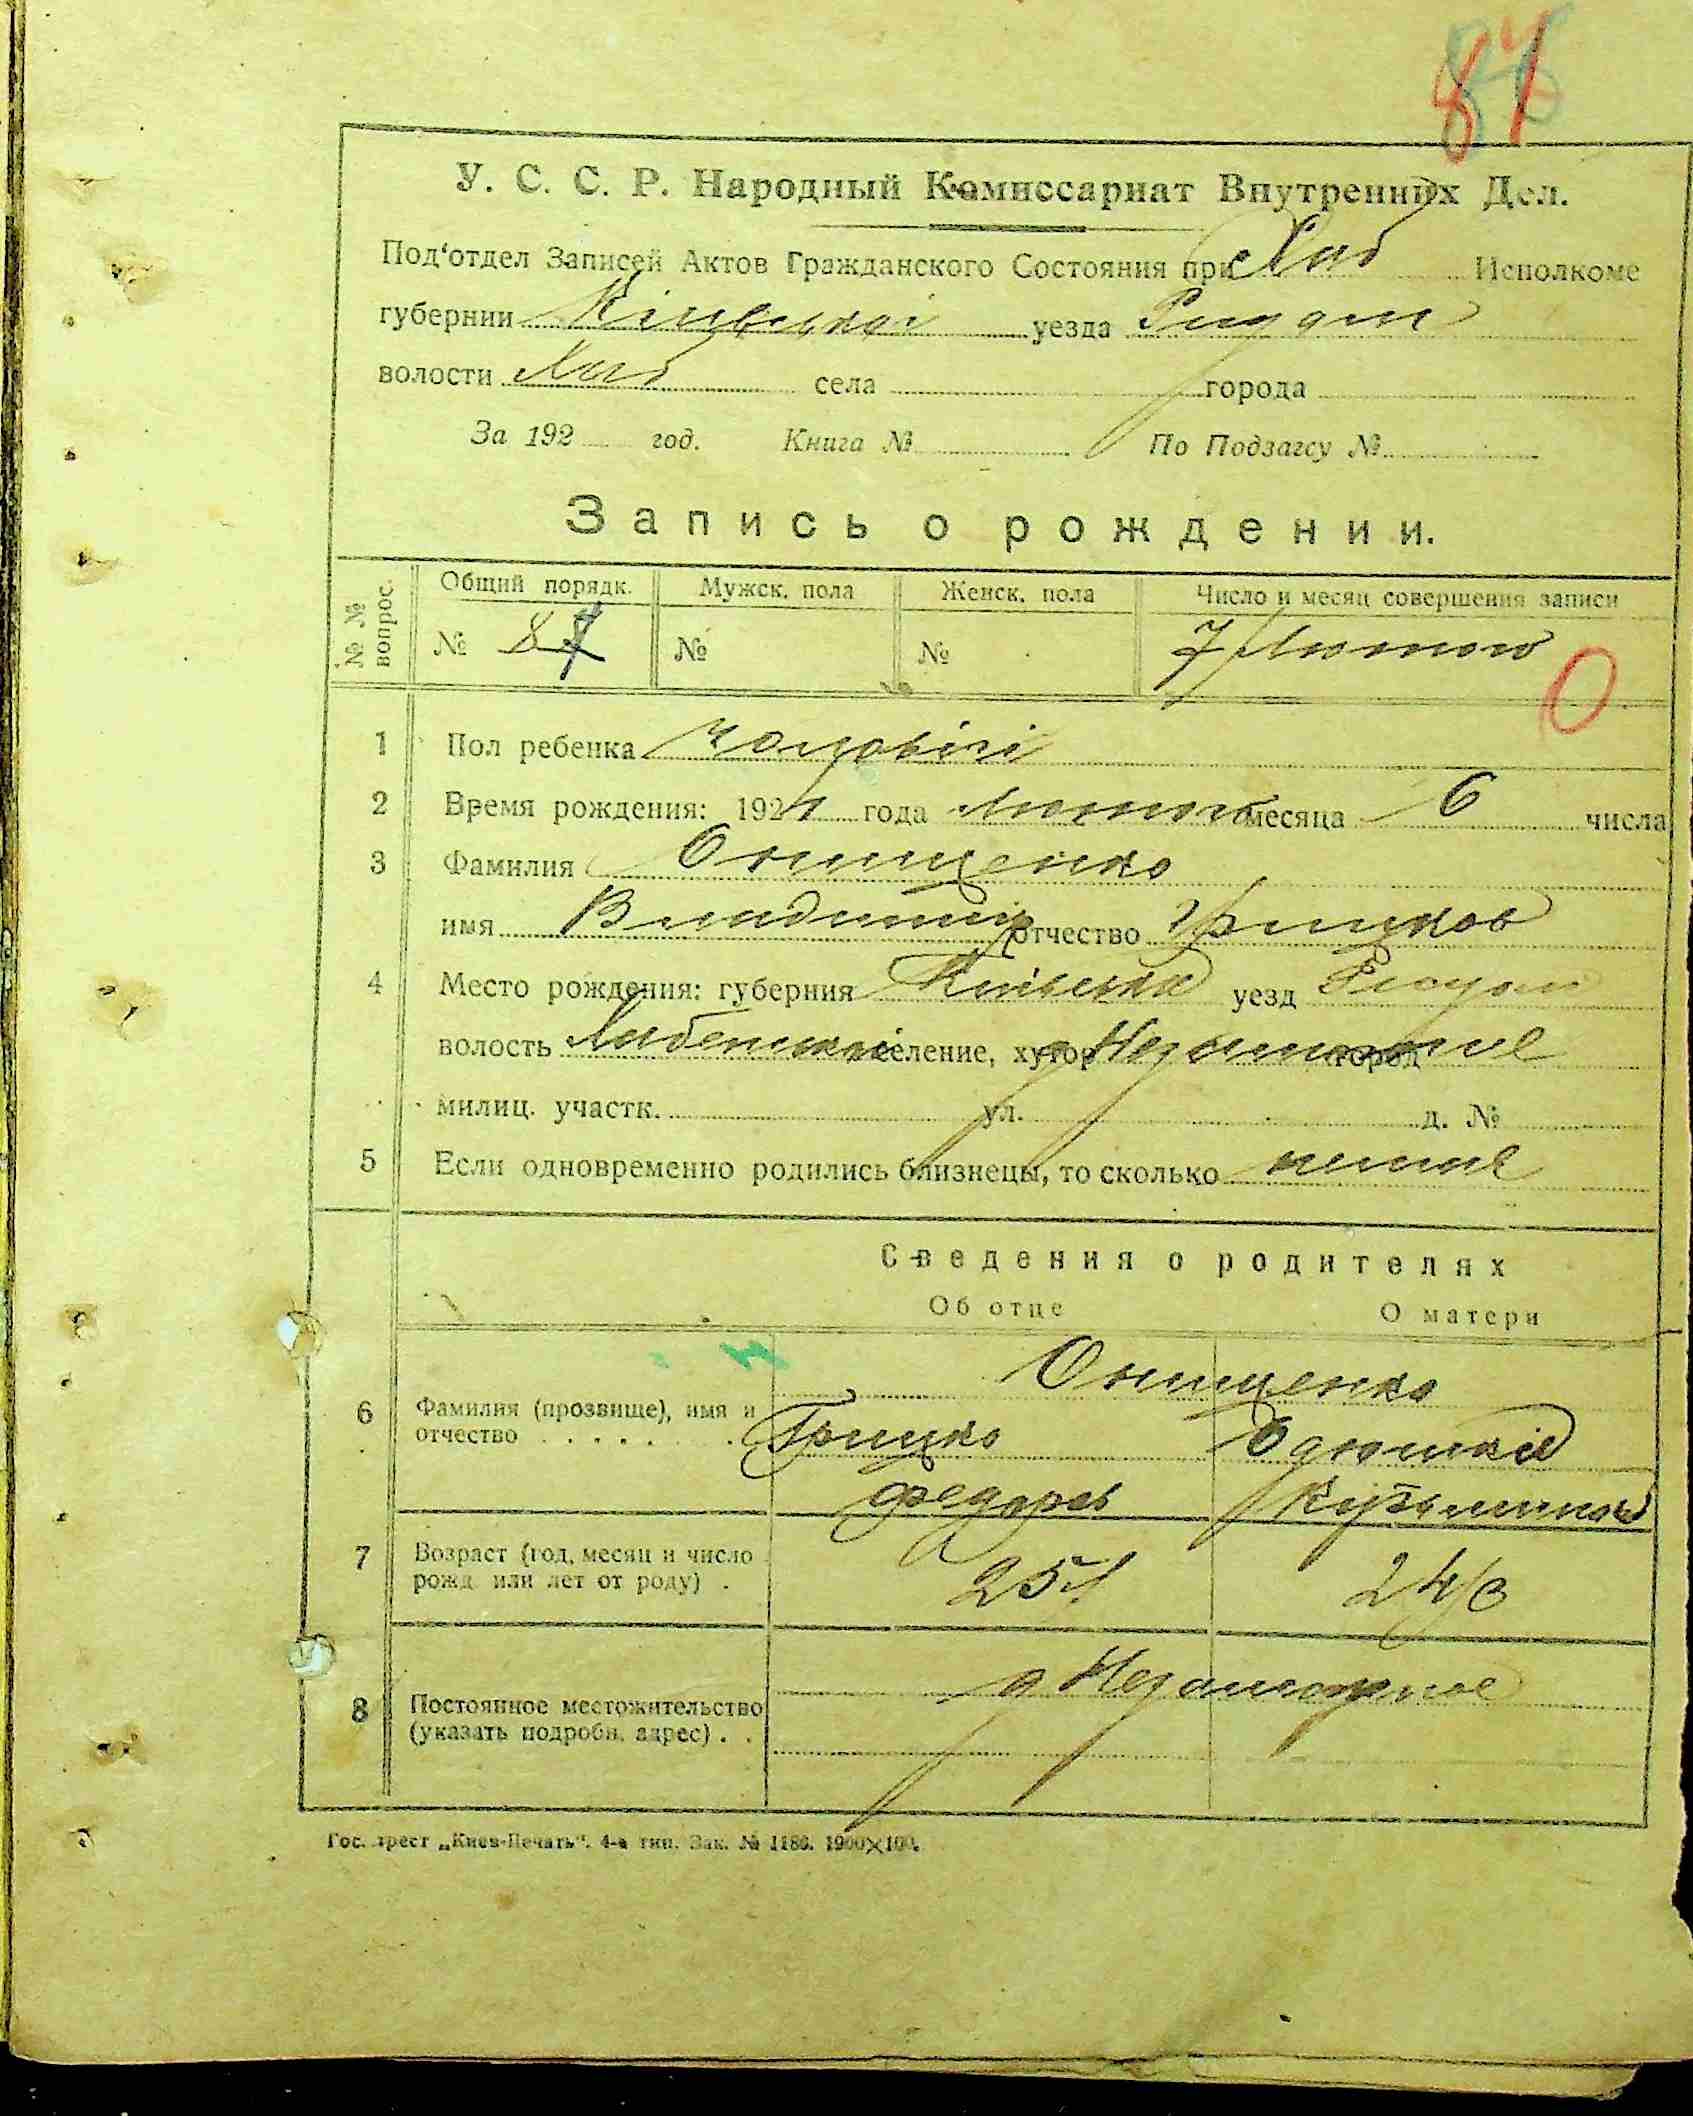 87
У. С. С. Р. Народный Комиссариат Внутренних Дел.
Под‘отдел Записей Актов Гражданского Состояния при Хаб Исполкоме
губернии Київської уезда
волости Хаб села города
За 192 год. Книга № По Подзагсу №
Запись о рождении.
№ № вопрос. Общий порядк. Мужск. пола Женск. пола Число и месяц совершения записи
№ 87 № № 7 Лютого
0
1 Пол ребенка чоловічі
2 Время рождения: 192 года Лютого месяца 6 числа
3 Фамилия Онищенко
имя Владимир отчество Грицков
4 Место рождения: губерния Київська уезд
волость селение, хутор город
милиц. участк. ул. д. №
5 Если одновременно родились близнецы, то сколько
Сведения о родителях
Об отце О матери
Онищенко
6 Фамилия (прозвище), имя и отчество . . . . . Грицко
Федоров
7 Возраст (год, месяц и число рожд. или лет от роду) . 25 24
8 Постоянное местожительство (указать подробн. адрес) . .
Гос. трест „Киев-Печать“. 4-а тип. Зак. № 1186. 1900×100.